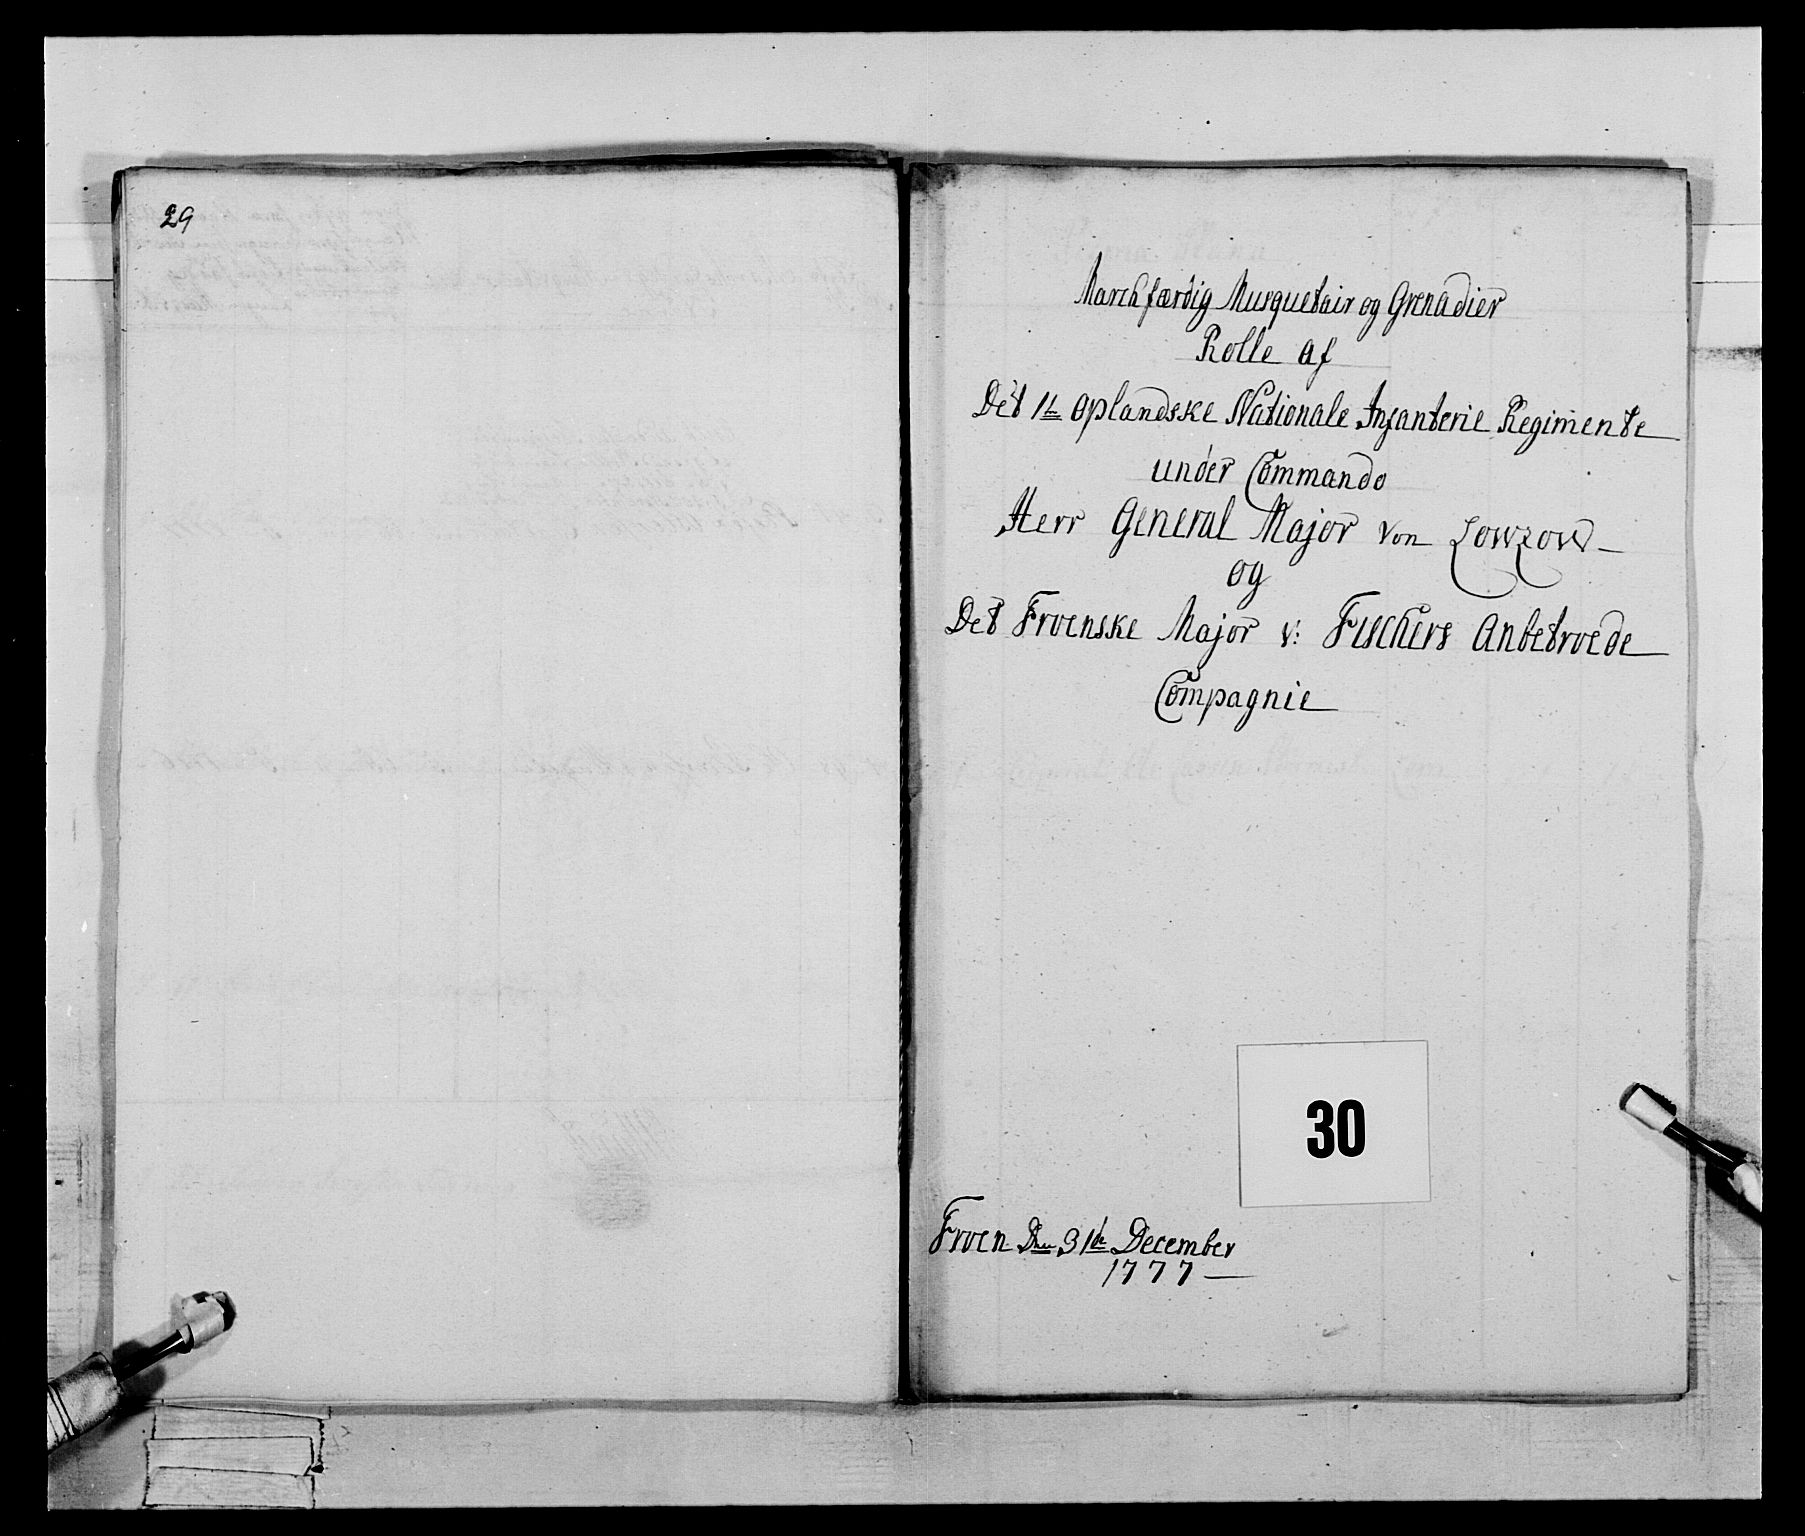 29
Marchfærdig Musquetair og Grenadier
Rolle af
Det 1te Oplandske Nationale Infanterie Regimente
under Commando
Herr General Major von Lowzow
og
Det Froenske Major v: Fischers Anbetroede
Compagnie
30
Froen Den 31te December
1777